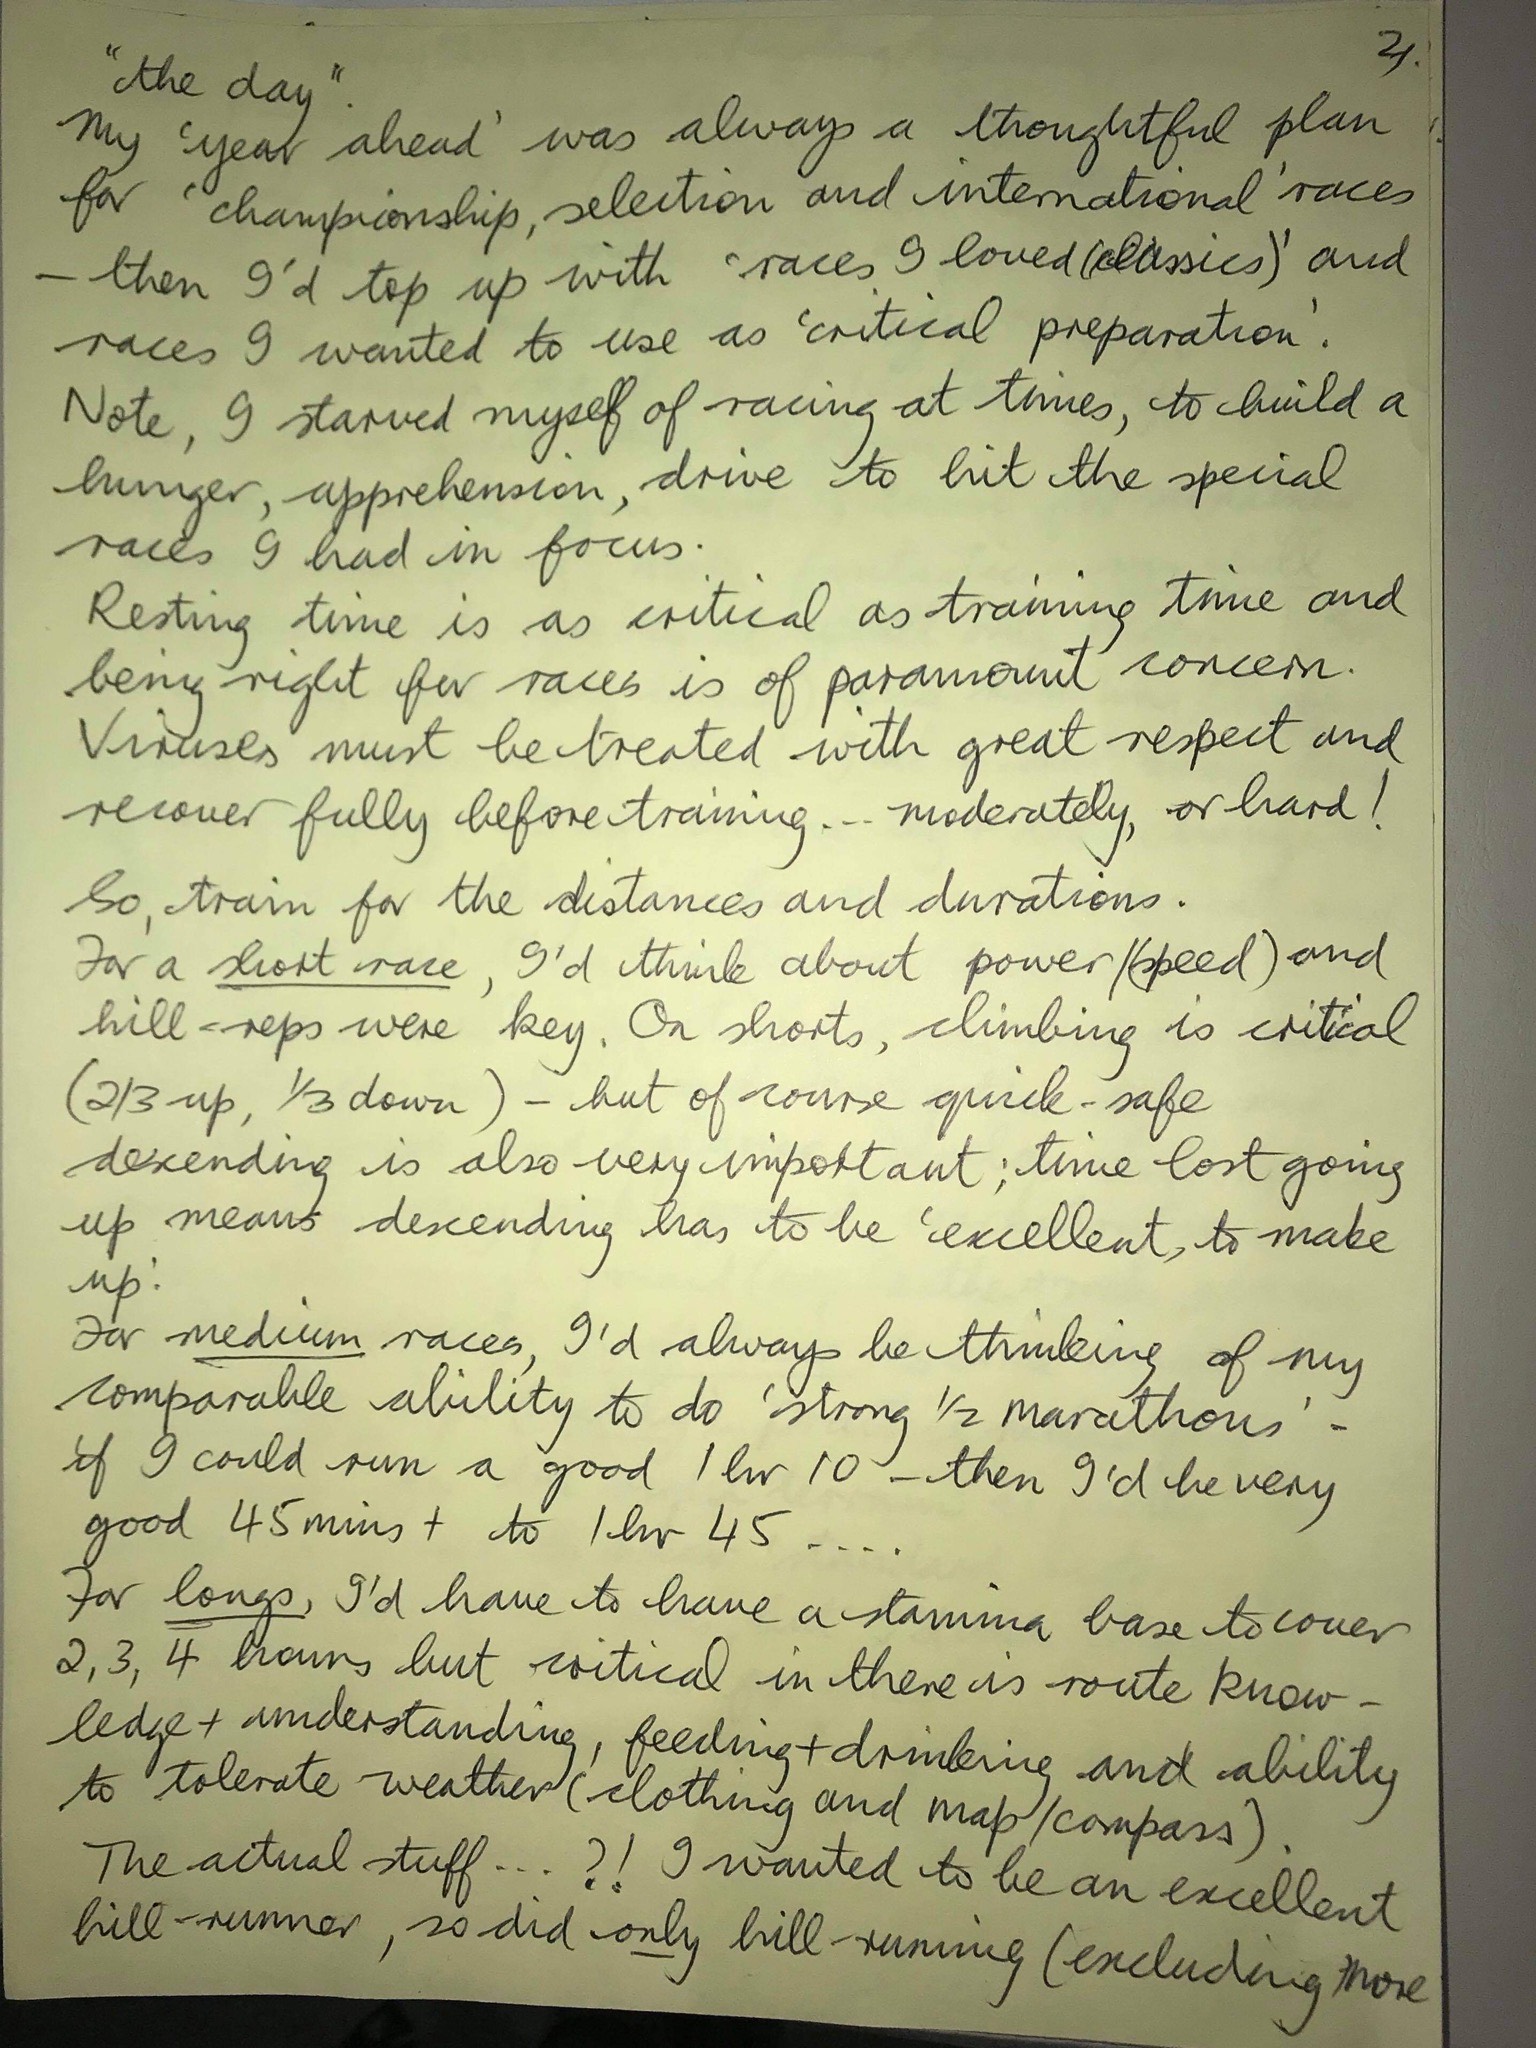 2.
"the day".
My 'year ahead' was always a thoughtful plan
for 'championship, selection and international' races
- then I'd top up with 'races I loved (classics)' and
races I wanted to use as 'critical preparation'.
Note, I starved myself of racing at times, to build a
hunger, apprehension, drive to hit the special
races I had in focus.
Resting time is as critical as training time and
being right for races is of paramount concern.
Viruses must be treated with great respect and
recover fully before training... moderately, or hard!
So, train for the distances and durations.
For a short race, I'd think about power/(speed) and
hill-reps were key. On shorts, climbing is critical
(2/3 up, 1/3 down) - but of course quick-safe
descending is also very important; time lost going
up means descending has to be 'excellent, to make
up'.
For medium races, I'd always be thinking of my
comparable ability to do 'strong 1/2 marathons' -
if I could run a good 1 hr 10 - then I'd be very
good 45 mins + to 1 hr 45 ....
For longs, I'd have to have a stamina base to cover
2, 3, 4 hours but critical in there is route know-
ledge + understanding, feeding + drinking and ability
to tolerate weather (clothing and map/compass).
The actual stuff... ?! I wanted to be an excellent
hill-runner, so did only hill-running (excluding more